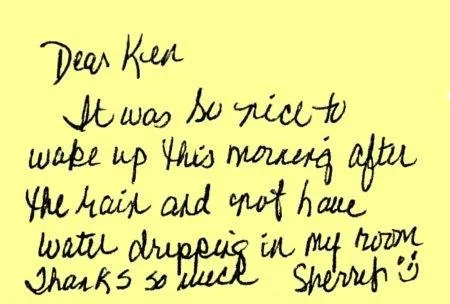 Dear Ken
It was so nice to
wake up this morning after
the rain and not have
water dripping in my room
Thanks so much Sherref